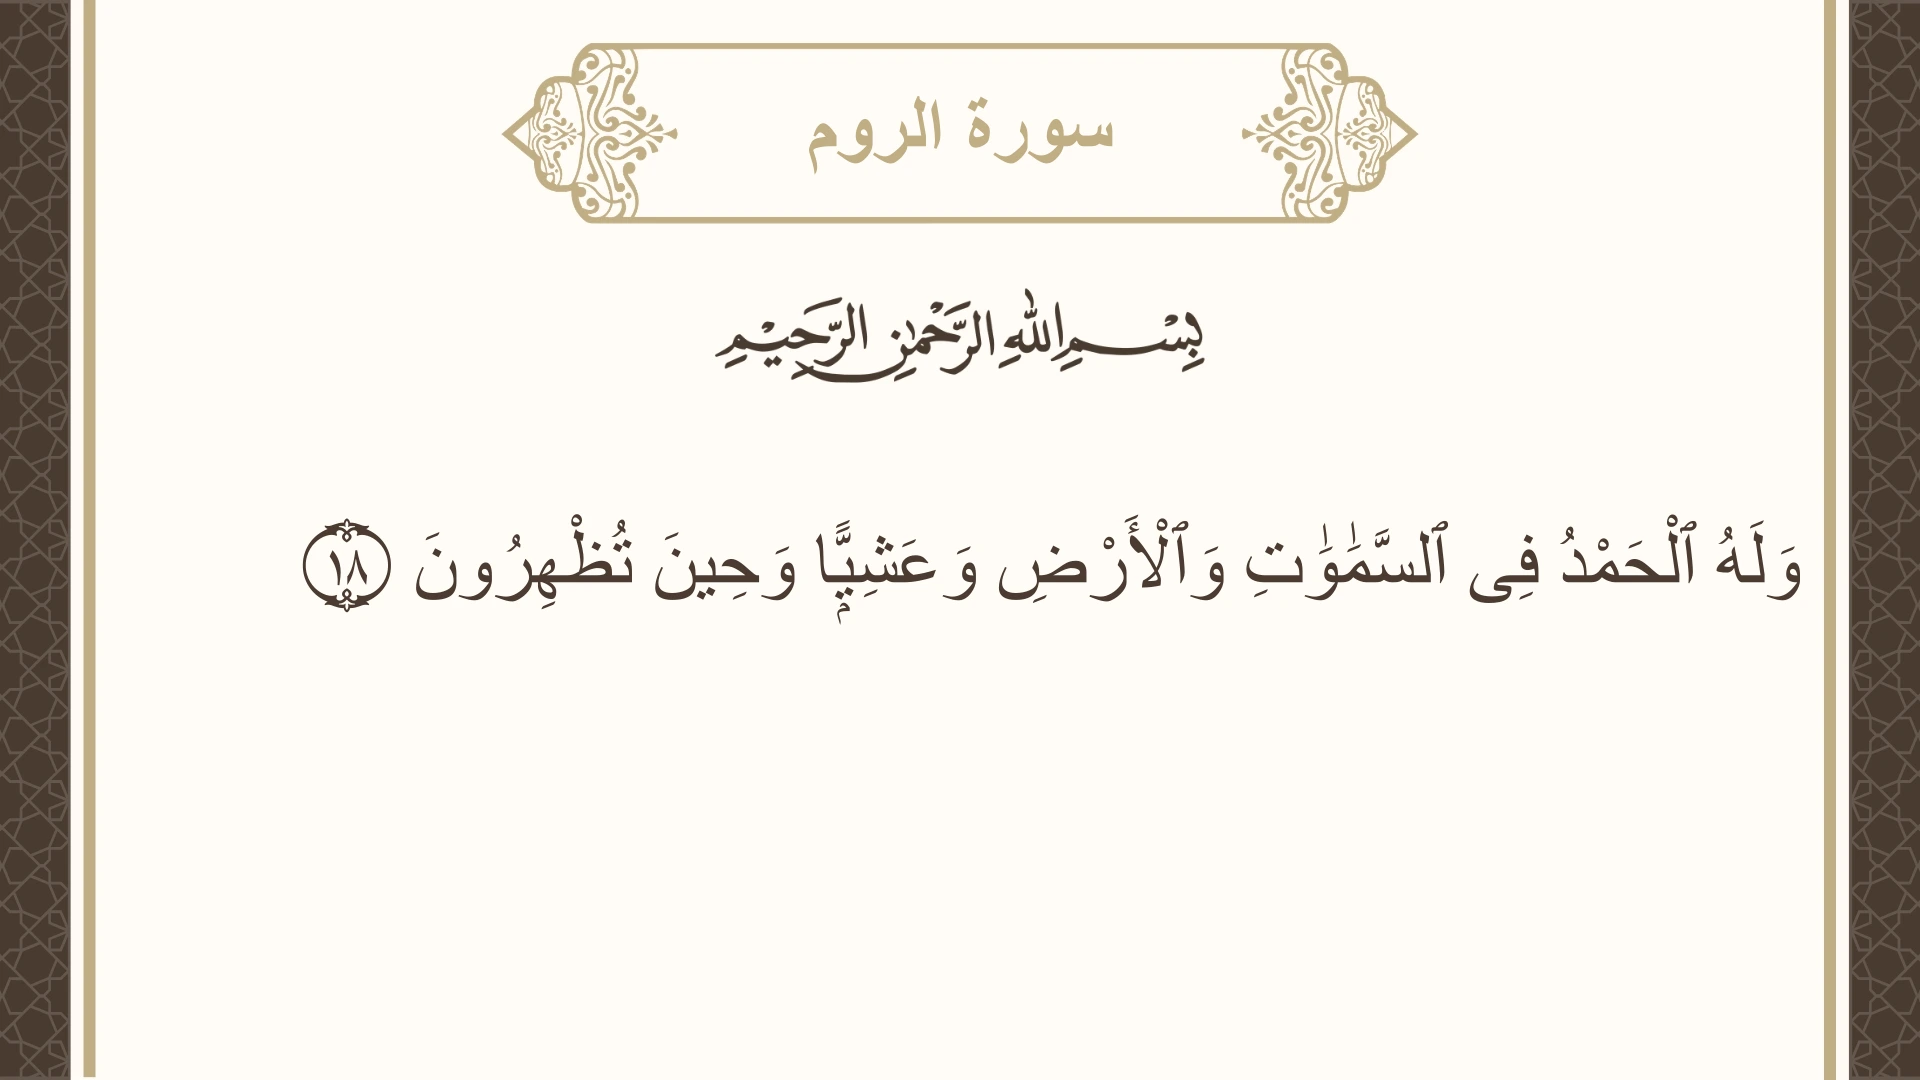 سورة الروم
بِسْمِ اللهِ الرَّحْمٰنِ الرَّحِيْمِ
وَلَهُ ٱلْحَمْدُ فِى ٱلسَّمَٰوَٰتِ وَٱلْأَرْضِ وَعَشِيًّۭا وَحِينَ تُظْهِرُونَ ١٨